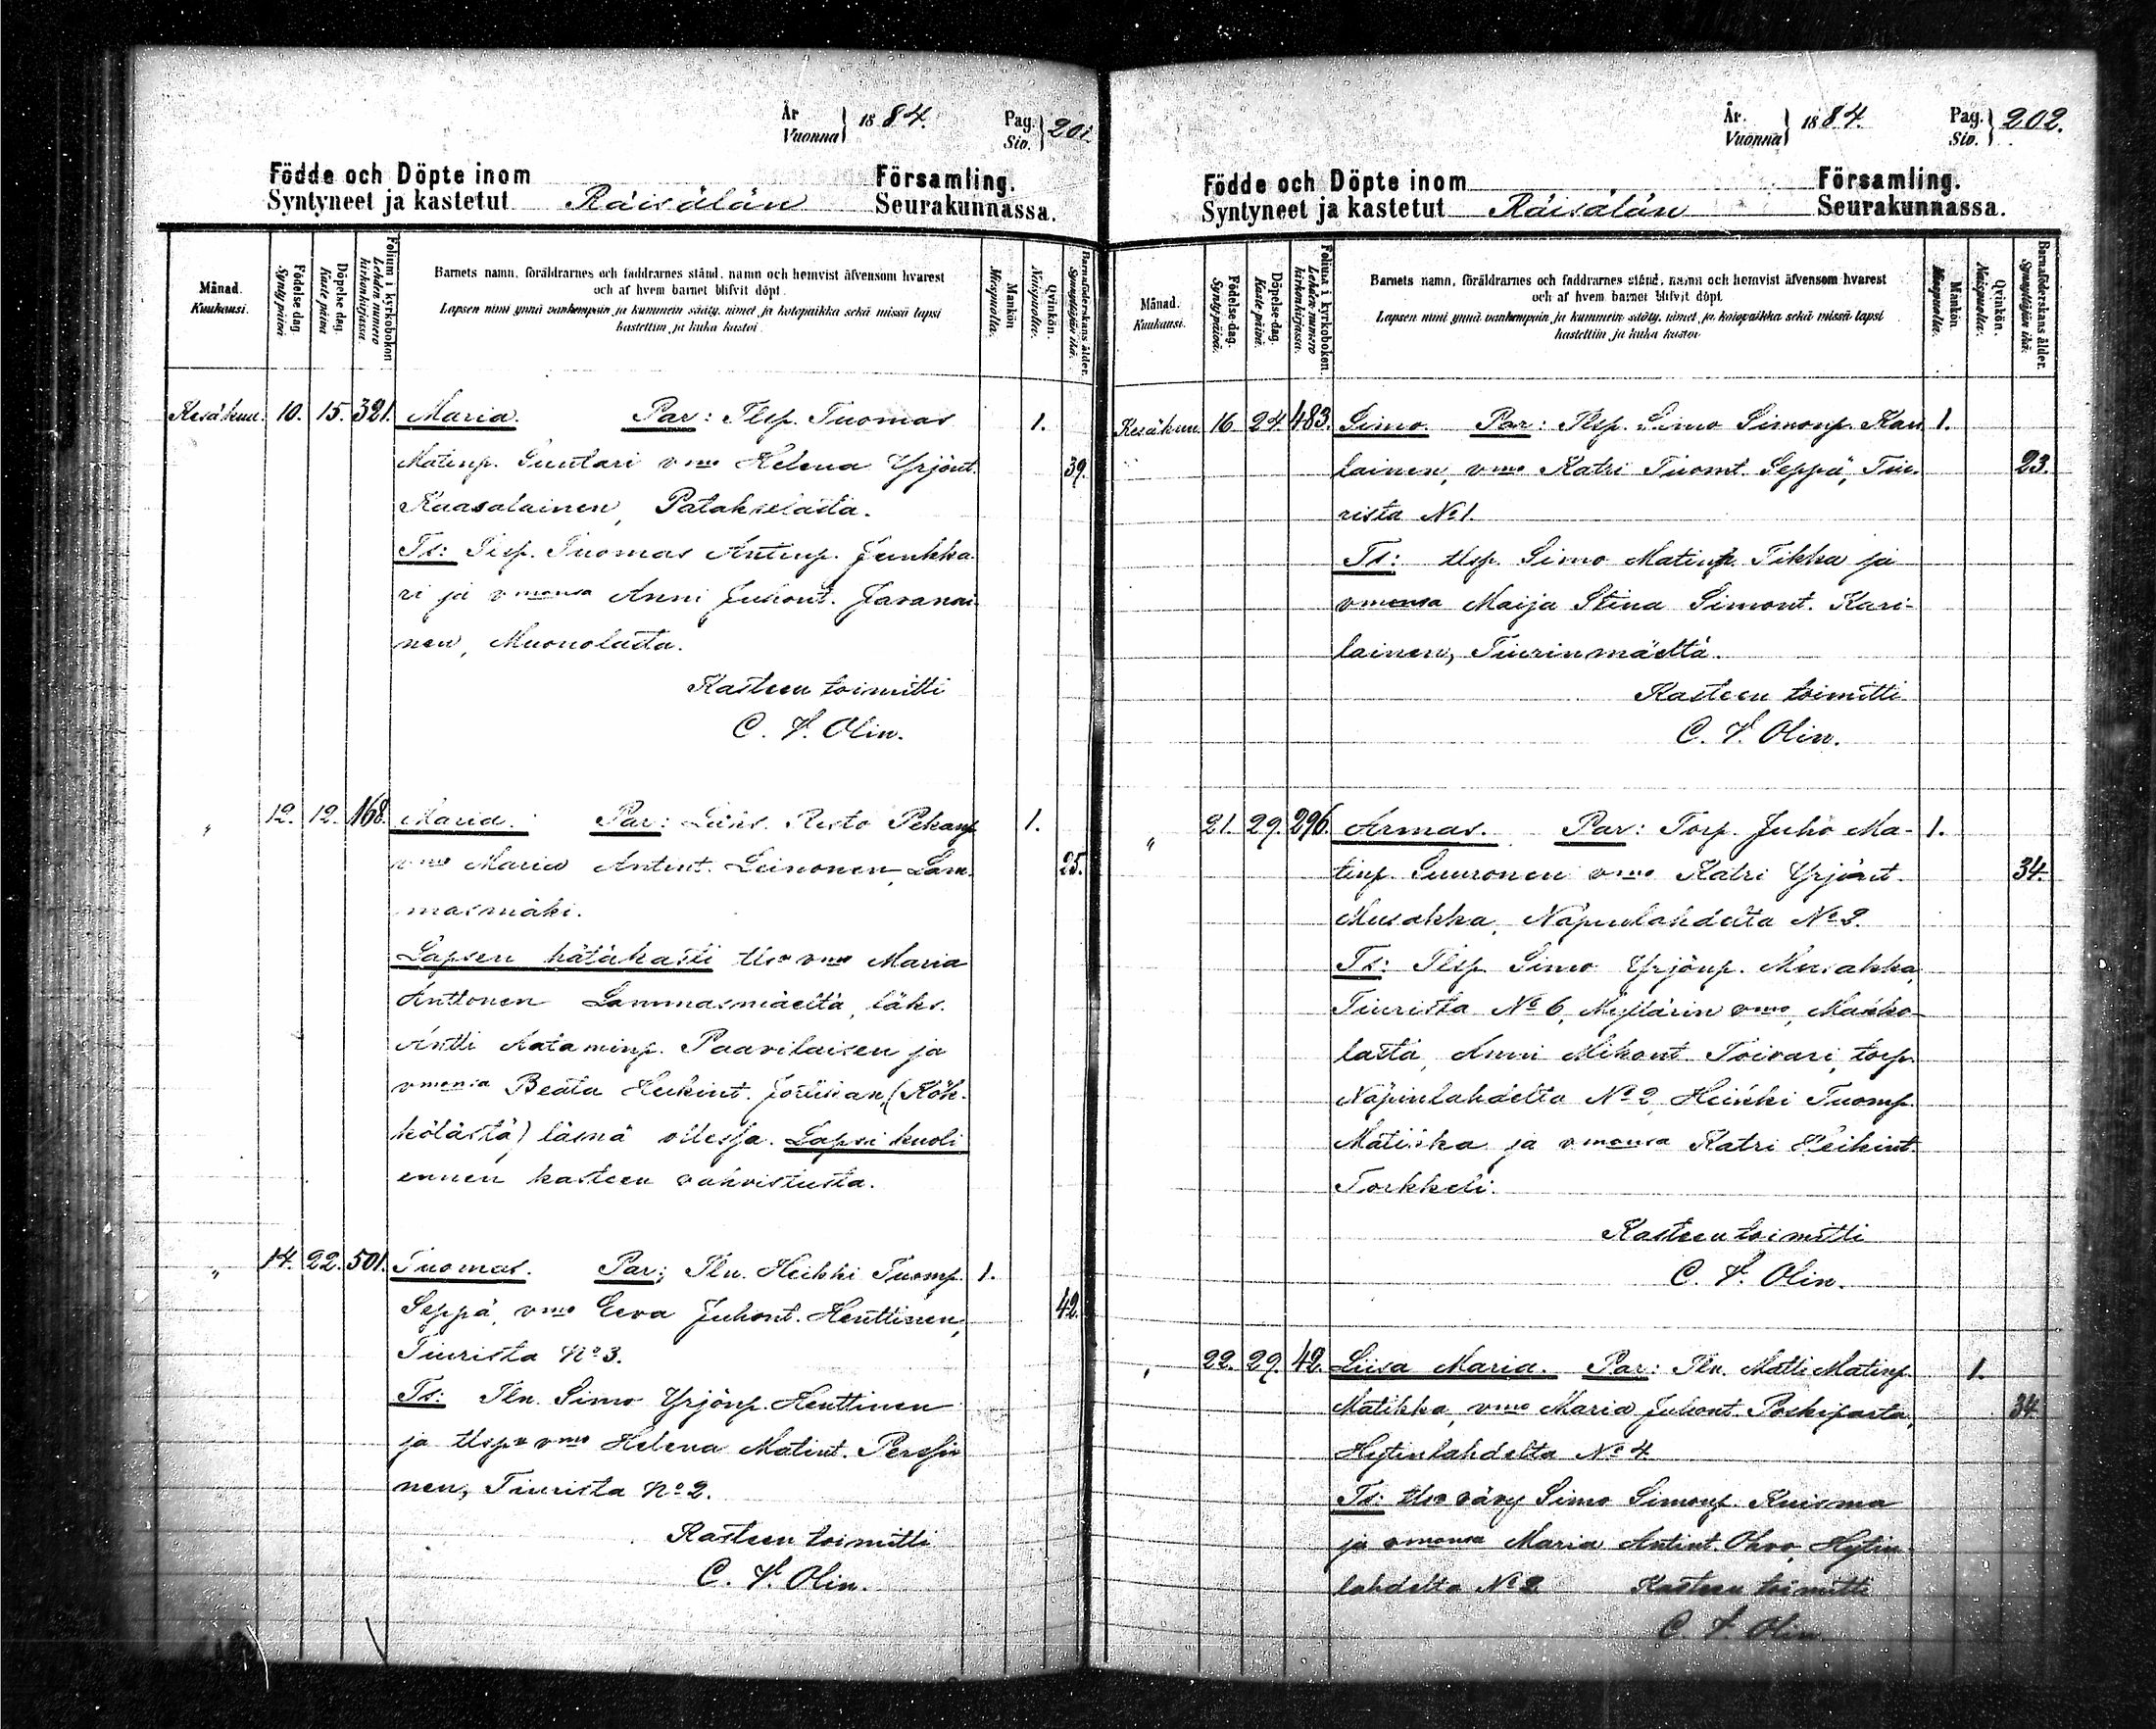 År
Vuonna } 1884.
Pag.
Siv. } 201.
Födde och Döpte inom Församling.
Syntyneet ja kastetut Räisälän Seurakunnassa.
Månad.
Kuukausi.
Födelse-dag.
Synty-päivä.
Döpelse-dag.
Kaste-päivä.
Folium i kyrkoboken.
Lehden numero kirkonkirjassa.
Barnets namn, föräldrarnes och faddrarnes stånd, namn och hemvist äfvensom hvarest
och af hvem barnet blifvit döpt.
Lapsen nimi ynnä vanhempain ja kummein sääty, nimet ja kotopaikka sekä missä lapsi
kastettiin ja kuka kastoi.
Mankön.
Miespuolia.
Qvinkön.
Naispuolia.
Barnaföderskans ålder.
Synnyttäjän ikä.
Kesäkuu. 10. 15. 321. Maria. Par: Tlsp. Tuomas 1.
Matinp. Suutari vmo Helena Yrjönt. 39.
Ruasalainen, Patakselasta.
Ts: Tlsp. Tuomas Antinp. Junkka-
ri ja vmonsa Anni Juhont. Javanai-
nen, Muonolasta.
Kasteen toimitti
C. F. Olin.
" 12. 12. 168. Maria. Par: Läks. Risto Pekanp. 1.
vmo Maria Antint. Leinonen, Lam- 25.
masmäki.
Lapsen hätäkasti tlsn vmo Maria
Anttonen Lammasmäeltä, läks.
Antti Aataminp. Paavilaisen ja
vmonsa Beata Heikint. Jortikan, (Kök-
kölästä) läsnä ollessa. Lapsi kuoli
ennen kasteen vahvistusta.
" 14. 22. 501. Tuomas. Par: Tln. Heikki Tuomp. 1.
Seppä, vmo Eeva Juhont. Henttinen, 42.
Tiurista No 3.
Ts: Tln. Simo Yrjönp. Henttinen
ja tlspn vmo Helena Matint. Pessi-
nen, Tiurista No 2.
Kasteen toimitti
C. F. Olin.
År.
Vuonna } 1884.
Pag.
Siv. } 202.
Födde och Döpte inom Församling.
Syntyneet ja kastetut Räisälän Seurakunnassa.
Månad.
Kuukausi.
Födelse-dag.
Synty-päivä.
Döpelse-dag.
Kaste-päivä.
Folium i kyrkoboken.
Lehden numero kirkonkirjassa.
Barnets namn, föräldrarnes och faddrarnes stånd, namn och hemvist äfvensom hvarest
och af hvem barnet blifvit döpt.
Lapsen nimi ynnä vanhempain ja kummein sääty, nimet ja kotopaikka sekä missä lapsi
kastettiin ja kuka kastoi.
Mankön.
Miespuolia.
Qvinkön.
Naispuolia.
Barnaföderskans ålder.
Synnyttäjän ikä.
Kesäkuu 16. 24. 483. Simo. Par: Tlsp. Simo Simonp. Kari 1.
lainen, vmo Katri Tuomt. Seppä, Tiu- 23.
rista No 1.
Ts: tlsp. Simo Matinp. Tikka ja
vmonsa Maija Stina Simont. Kari-
lainen, Tiurinmäeltä.
Kasteen toimitti
C. F. Olin.
" 21. 29. 296. Armas. Par: Torp. Juho Ma- 1.
tinp. Suuronen vmo Katri Yrjönt. 34.
Musakka, Näpinlahdelta No 2.
Ts: Tlsp. Simo Yrjönp. Musakka,
Tiurista No 6, Myllärin vmo,
lasta, Anni Mikont. Toivari, torp.
Näpinlahdelta No 2, Heikki Tuomp.
Matiska ja vmonsa Katri Heikint.
Torkkeli.
Kasteen toimitti
C. F. Olin.
" 22. 29. 42. Liisa Maria. Par: Tln. Matti Matinp. 1.
Matikka, vmo Maria Juhont. Poskiparta, 34.
Hytinlahdelta No 4.
Ts: tlsn vävy Simo Simonp. Kuisma
ja vmonsa Maria Antint. Ohvo, Hytin-
lahdelta No 2. Kasteen toimitti
C. F. Olin.